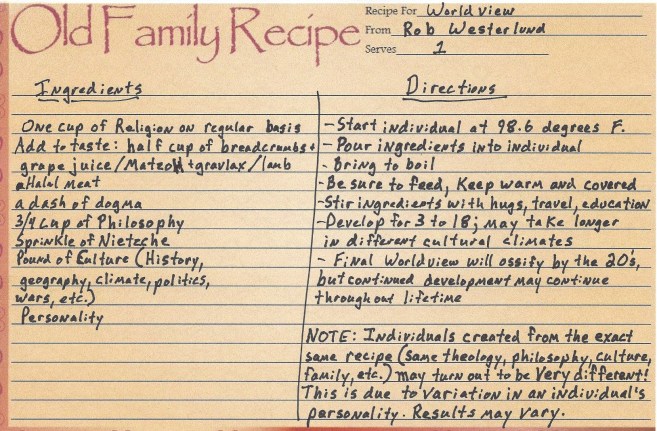 Old Family Recipe
Recipe For Worldview
From Rob Westerlund
Serves 1
Ingredients
One cup of Religion on regular basis
Add to taste: half cup of breadcrumbs +
grape juice/Matzoh + gravlax/lamb
Halal Meat
a dash of dogma
3/4 cup of Philosophy
Sprinkle of Nietzche
Pound of Culture (History,
geography, climate, politics,
wars, etc.)
Personality
Directions
- Start individual at 98.6 degrees F.
- Pour ingredients into individual
- Bring to boil
- Be sure to feed, Keep warm and covered
- Stir ingredients with hugs, travel, education
- Develop for 3 to 18; may take longer
in different cultural climates
- Final Worldview will ossify by the 20's,
but continued development may continue
throughout lifetime
NOTE: Individuals created from the exact
same recipe (same theology, philosophy, culture,
family, etc.) may turn out to be Very different!
This is due to variation in an individual's
personality. Results may vary.